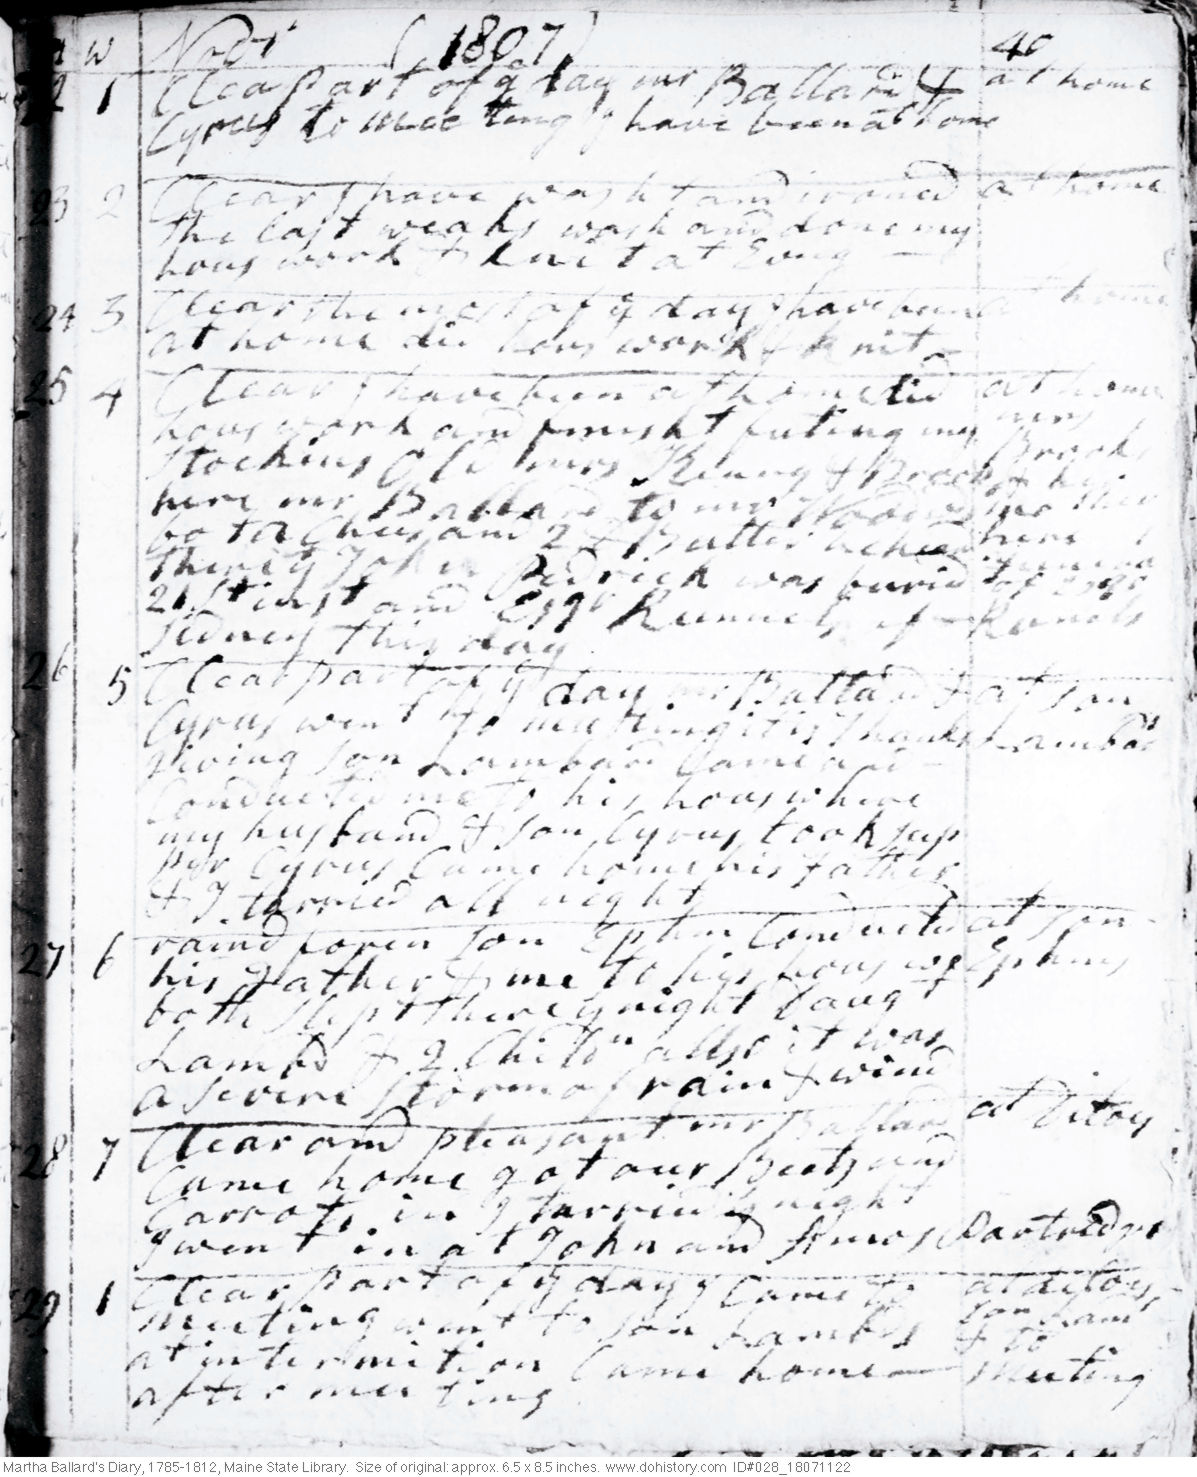 m w Novr (1807) 40
22 1 Clear part of ye day mr Ballard & at home
Cyrus to meeting I have been at home
23 2 Clear I have washt and ironed at home
the last weaks wash and done my
hous work & knit at Evng
24 3 Clear the most of ye day I have been at home
at home did hous work & knit
25 4 Clear I have been at home did at home
hous work and finisht futing my mrs
Stockins Old mrs Kenny & Brooks Brooks &
here mr Ballard to mr here
bot a Chees and 2 lb Butter he funeral
John Pedrick was buried of Esqr
21st inst and Esqr Runnels of Runels
Sidney this day
26 5 Clear part of ye day mr Ballard & at son
Cyrus went to meeting it is Thanks Lambads
giving son Lambard Came and
Conducted me to his hous where
my husband & son Cyrus took sup
per Cyrus Came home his father
& I tarried all night
27 6 raind foren son Ephm Conducted at son
his Father & me to his hous we Ephms
both slept there ye night Daugt
Lambd & 2 Childn allso it was
a severe storm of rain & wind
28 7 Clear and pleasant mr Ballard at Ditoys
Came home got our Beets and
Carrots in I tarried ye night
I went in at John and Amos Partridges
29 1 Clear part of ye day I Came to at ditoys,
meeting went to son Lambds son Lam
at intermition Came home & to
after meeting meeting
Martha Ballard's Diary, 1785-1812, Maine State Library. Size of original: approx. 6.5 x 8.5 inches. www.dohistory.com ID#028_18071122